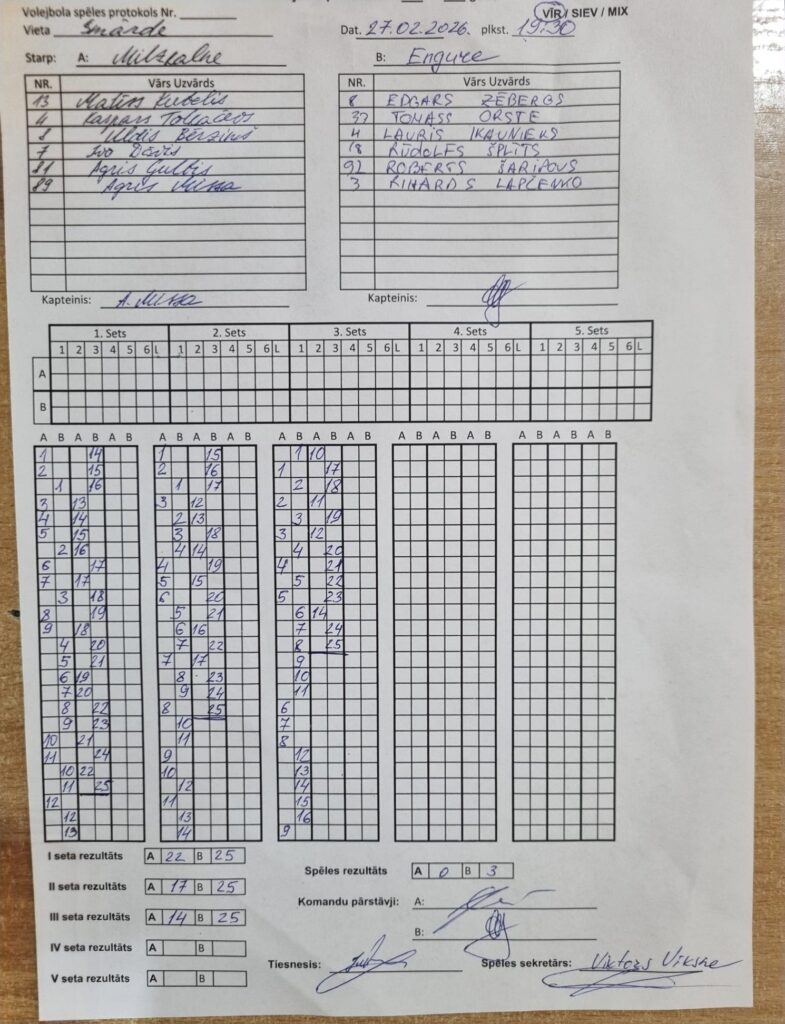 Volejbola spēles protokols Nr. VĪR / SIEV / MIX
Vieta Smārde Dat. 27.02.2026. plkst. 19:30
Starp: A: Milzkalne B: Engure
NR. Vārs Uzvārds NR. Vārs Uzvārds
13 Matīss Kubelis 8 EDGARS ZĒBERGS
4 Kaspars 37 TOMASS ORSTE
8 Uldis Bērziņš 4 LAURIS IKAUNIEKS
7 Ivo 18 RŪDOLFS ŠPLĪTS
81 Agris Gulbis 92 ROBERTS ŠARIPOVS
89 Agris Missa 3 RIHARDS LAPČENKO
Kapteinis: A. Missa Kapteinis:
1. Sets 2. Sets 3. Sets 4. Sets 5. Sets
1 2 3 4 5 6 L 1 2 3 4 5 6 L 1 2 3 4 5 6 L 1 2 3 4 5 6 L 1 2 3 4 5 6 L
A
B
A B A B A B A B A B A B A B A B A B A B A B A B A B A B A B
1 14 1 15 1 10
2 15 2 16 1 17
1 16 1 17 2 18
3 13 3 12 2 11
4 14 2 13 3 19
5 15 3 18 3 12
2 16 4 14 4 20
6 17 4 19 4 21
7 17 5 15 5 22
3 18 6 20 5 23
8 19 5 21 6 14
9 18 6 16 7 24
4 20 7 22 8 25
5 21 7 17 9
6 19 8 23 10
7 20 9 24 11
8 22 8 25 6
9 23 10 7
10 21 11 8
11 24 9 12
10 22 10 13
11 25 12 14
12 11 15
12 13 16
13 14 9
I seta rezultāts A 22 B 25
Spēles rezultāts A 0 B 3
II seta rezultāts A 17 B 25
Komandu pārstāvji: A:
III seta rezultāts A 14 B 25
B:
IV seta rezultāts A B
Tiesnesis: Spēles sekretārs: Viktors Vīksne
V seta rezultāts A B